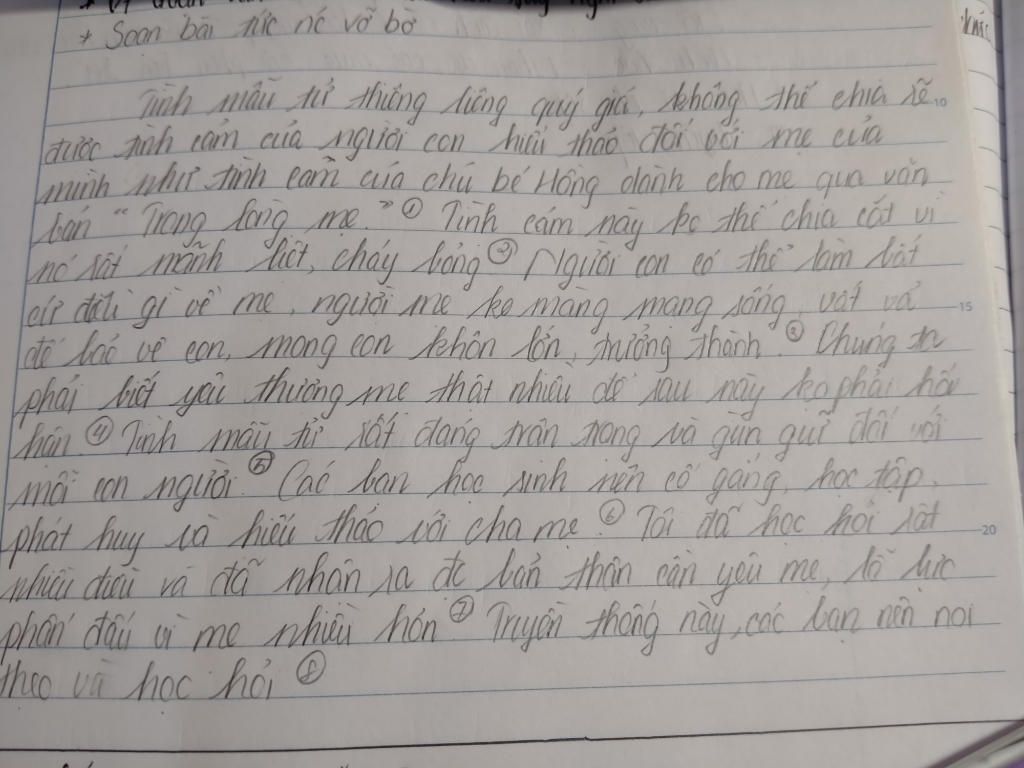 * Soạn bài tức nc vỡ bờ
Tình mẫu tử thiêng liêng quý giá, không thể chia sẽ
được tình cảm của người con hiếu thảo đối với mẹ của
mình như tình cảm của chú bé Hồng dành cho mẹ qua văn
bản "Trong lòng mẹ." ① Tình cảm này ko thể chia cắt vì
nó rất mãnh liệt, cháy bỏng ② Người con có thể làm bất
cứ điều gì về mẹ, người mẹ ko màng mạng sống, vất vả
để bảo vệ con, mong con khôn lớn, trưởng thành. ③ Chúng ta
phải biết yêu thương mẹ thật nhiều để sau này ko phải hối
hận ④ Tình mẫu tử rất đáng trân trọng và gần gũi đối với
mỗi con người. ⑤ Các bạn học sinh nên cố gắng, học tập,
phát huy và hiếu thảo với cha mẹ ⑥ Tôi đã học hỏi rất
nhiều điều và đã nhận ra đc bản thân cần yêu mẹ, lỗ lực
phấn đấu vì mẹ nhiều hơn ⑦ Truyền thống này, các bạn nên noi
theo và học hỏi ⑧
10
15
20